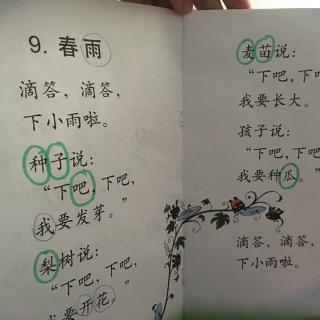 9. 春雨
滴答，滴答，
下小雨啦。
种子说：
“下吧，下吧，
我要发芽。”
梨树说：
“下吧，下吧，
我要开花。”
麦苗说：
“下吧，下
我要长大。
孩子说：
“下吧，下吧
我要种瓜。”
滴答，滴答
下小雨啦。